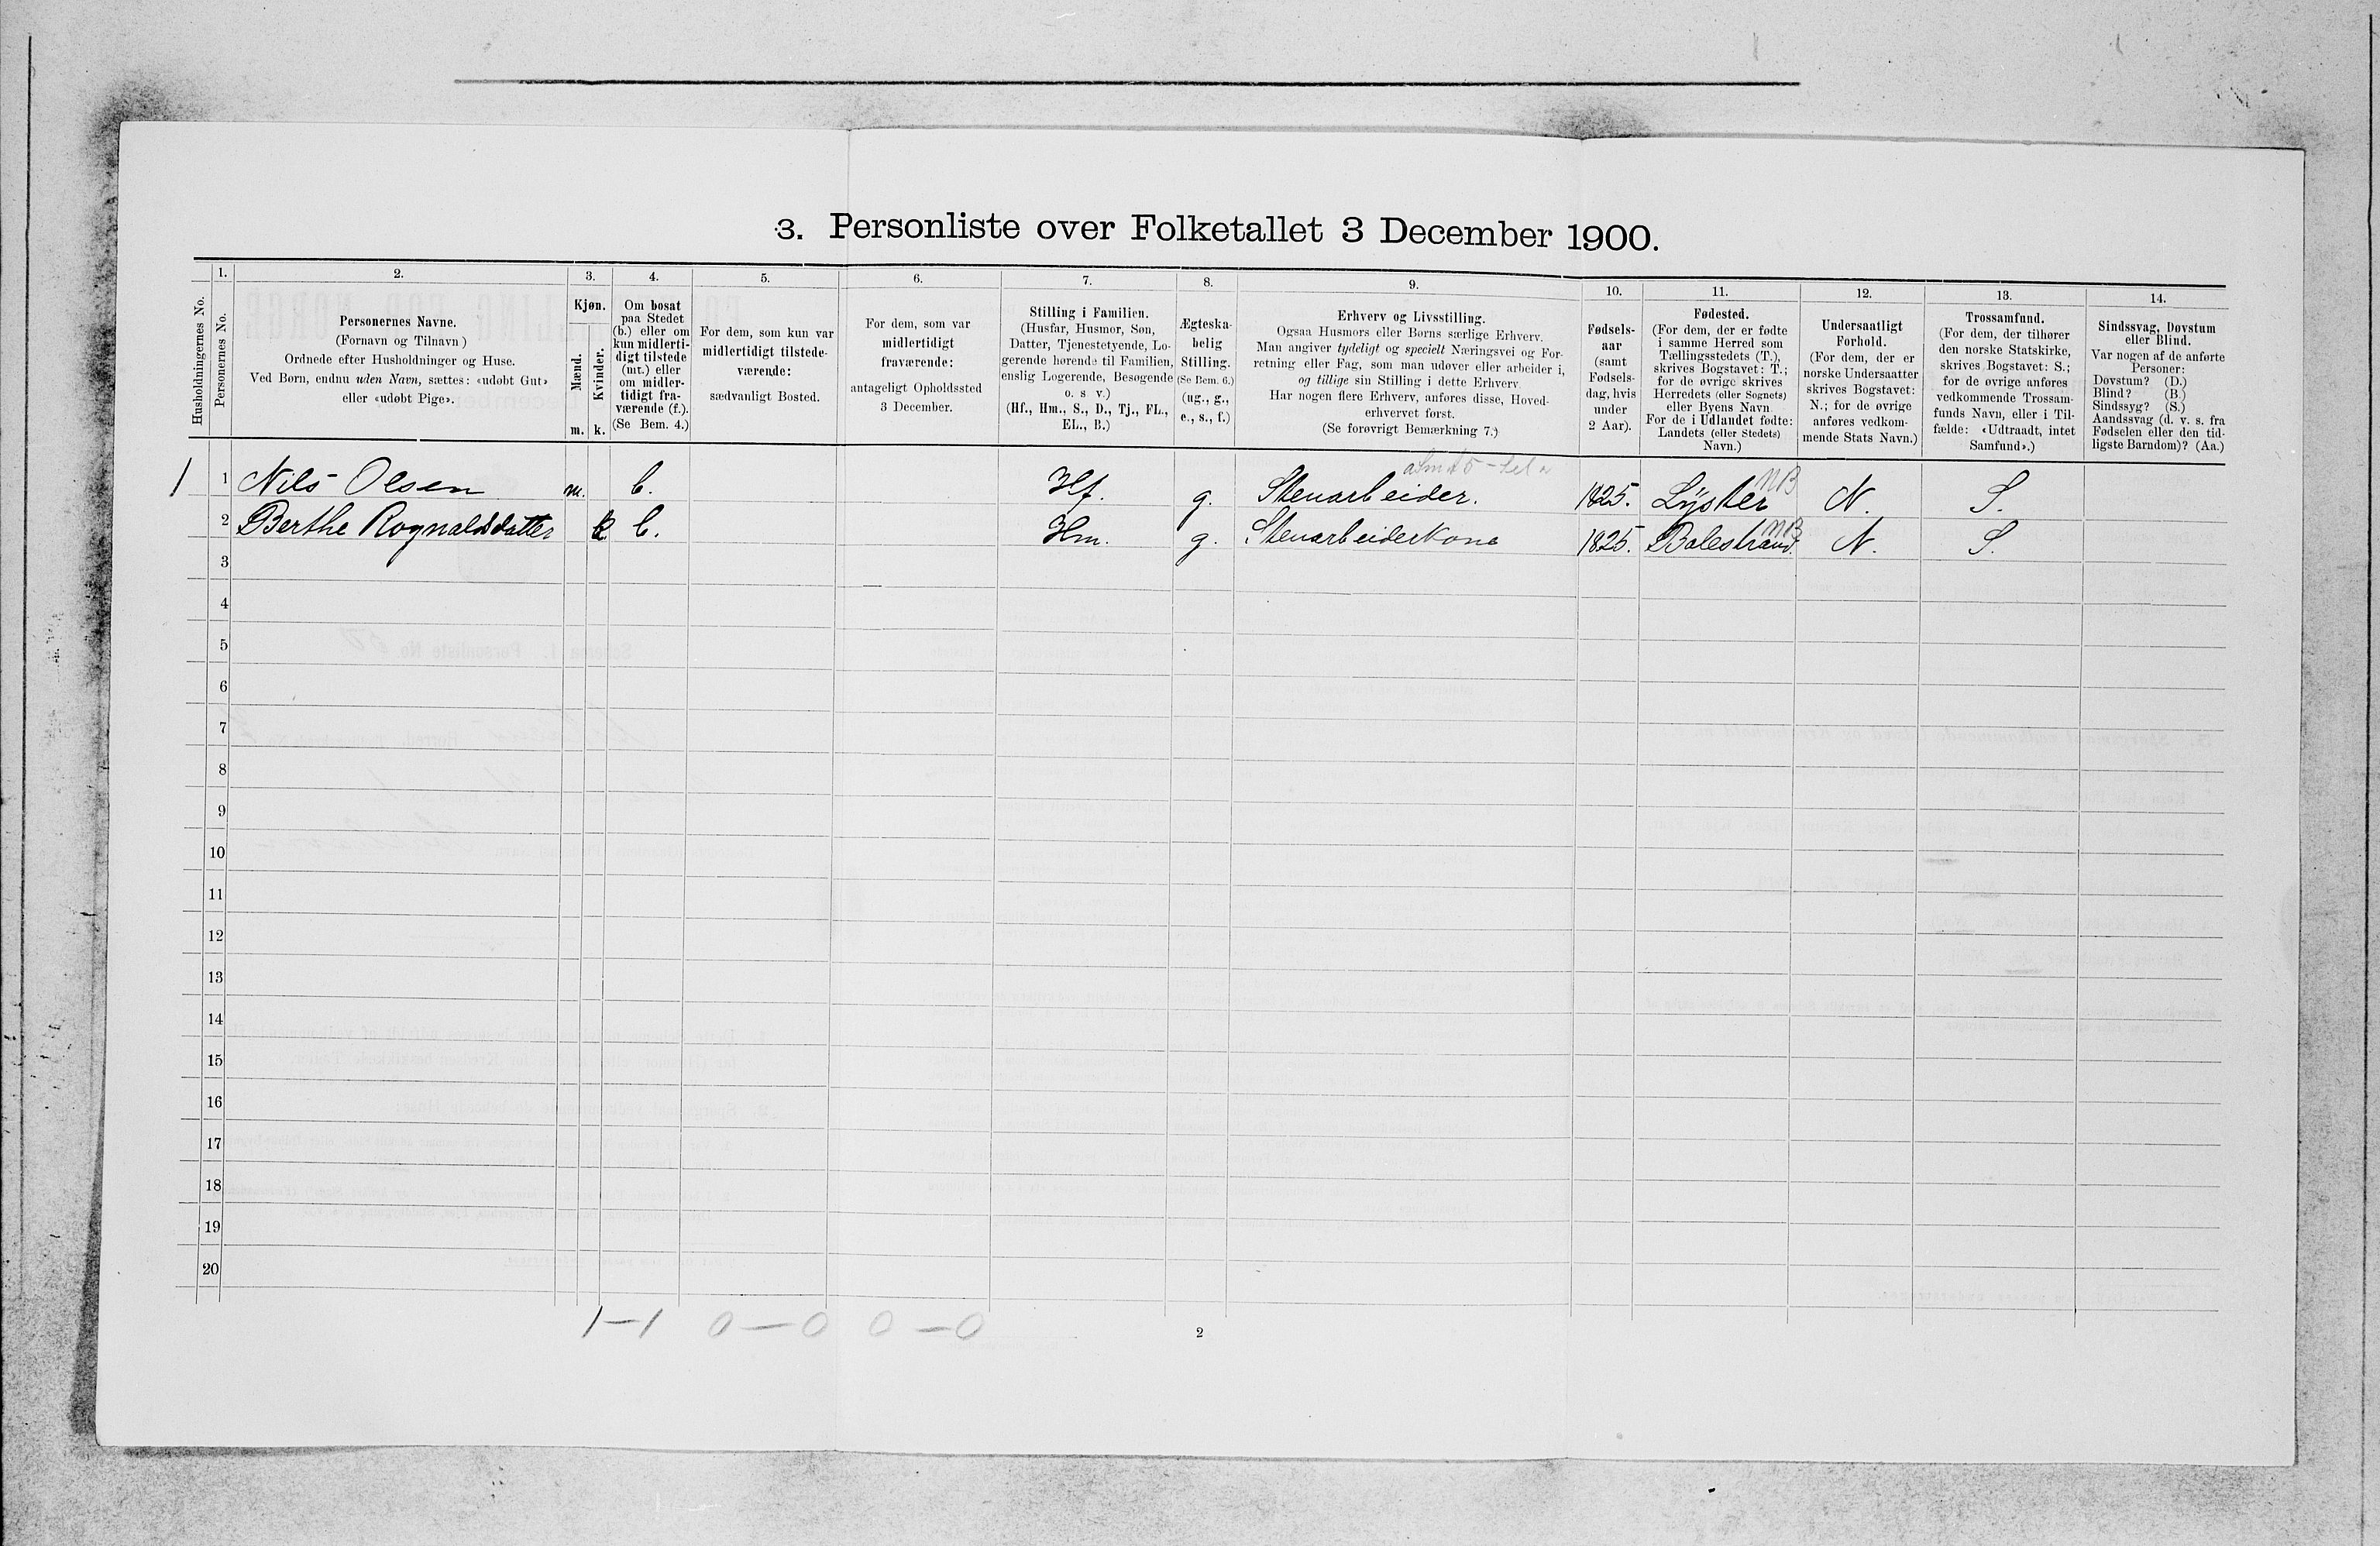 3. Personliste over Folketallet 3 December 1900.
1. 2. 3. 4. 5. 6. 7. 8. 9. 10. 11. 12. 13. 14.
Husholdningernes No.
Personernes No.
Personernes Navne.
(Fornavn og Tilnavn)
Ordnede efter Husholdninger og Huse.
Ved Børn, endnu uden Navn, sættes: «udøbt Gut»
eller «udøbt Pige».
Kjøn.
Mænd.
Kvinder.
m. k.
Om bosat
paa Stedet
(b.) eller om
kun midlerti-
digt tilstede
(mt.) eller
om midler-
tidigt fra-
værende (f.).
(Se Bem. 4.)
For dem, som kun var
midlertidigt tilstede-
værende:
sædvanligt Bosted.
For dem, som var
midlertidigt
fraværende:
antageligt Opholdssted
3 December.
Stilling i Familien.
(Husfar, Husmor, Søn,
Datter, Tjenestetyende, Lo-
gerende hørende til Familien,
enslig Logerende, Besøgende
o. s v.)
(Hf., Hm., S., D., Tj., FL.,
EL., B.)
Ægteska-
belig
Stilling.
(Se Bem. 6.)
(ug., g.,
e., s., f.)
Erhverv og Livsstilling.
Ogsaa Husmors eller Børns særlige Erhverv.
Man angiver tydeligt og specielt Næringsvei og For-
retning eller Fag, som man udøver eller arbeider i,
og tillige sin Stilling i dette Erhverv.
Har nogen flere Erhverv, anføres disse, Hoved-
erhvervet først.
(Se forøvrigt Bemærkning 7.)
Fødsels-
aar
(samt
Fødsels-
dag, hvis
under
2 Aar).
Fødested.
(For dem, der er fødte
i samme Herred som
Tællingsstedets (T.),
skrives Bogstavet: T.;
for de øvrige skrives
Herredets (eller Sognets)
eller Byens Navn.
For de i Udlandet fødte:
Landets (eller Stedets)
Navn.)
Undersaatligt
Forhold.
(For dem, der er
norske Undersaatter
skrives Bogstavet:
N.; for de øvrige
anføres vedkom-
mende Stats Navn.)
Trossamfund.
(For dem, der tilhører
den norske Statskirke,
skrives Bogstavet: S.;
for de øvrige anføres
vedkommende Trossam-
funds Navn, eller i Til-
fælde: «Udtraadt, intet
Samfund».)
Sindssvag, Døvstum
eller Blind.
Var nogen af de anførte
Personer:
Døvstum? (D.)
Blind? (B.)
Sindssyg? (S.)
Aandssvag (d. v. s. fra
Fødselen eller den tid-
ligste Barndom)? (Aa.)
1 1 Nils Olsen m. b. Hf. g. Stenarbeider. 1825. Lyster NB N. S.
2 Berthe Rognaldsdatter k b. Hm. g. Stenarbeiderkone 1825. Balestrand. NB N. S.
3
4
5
6
7
8
9
10
11
12
13
14
15
16
17
18
19
20
1-1 0-0 0-0
2